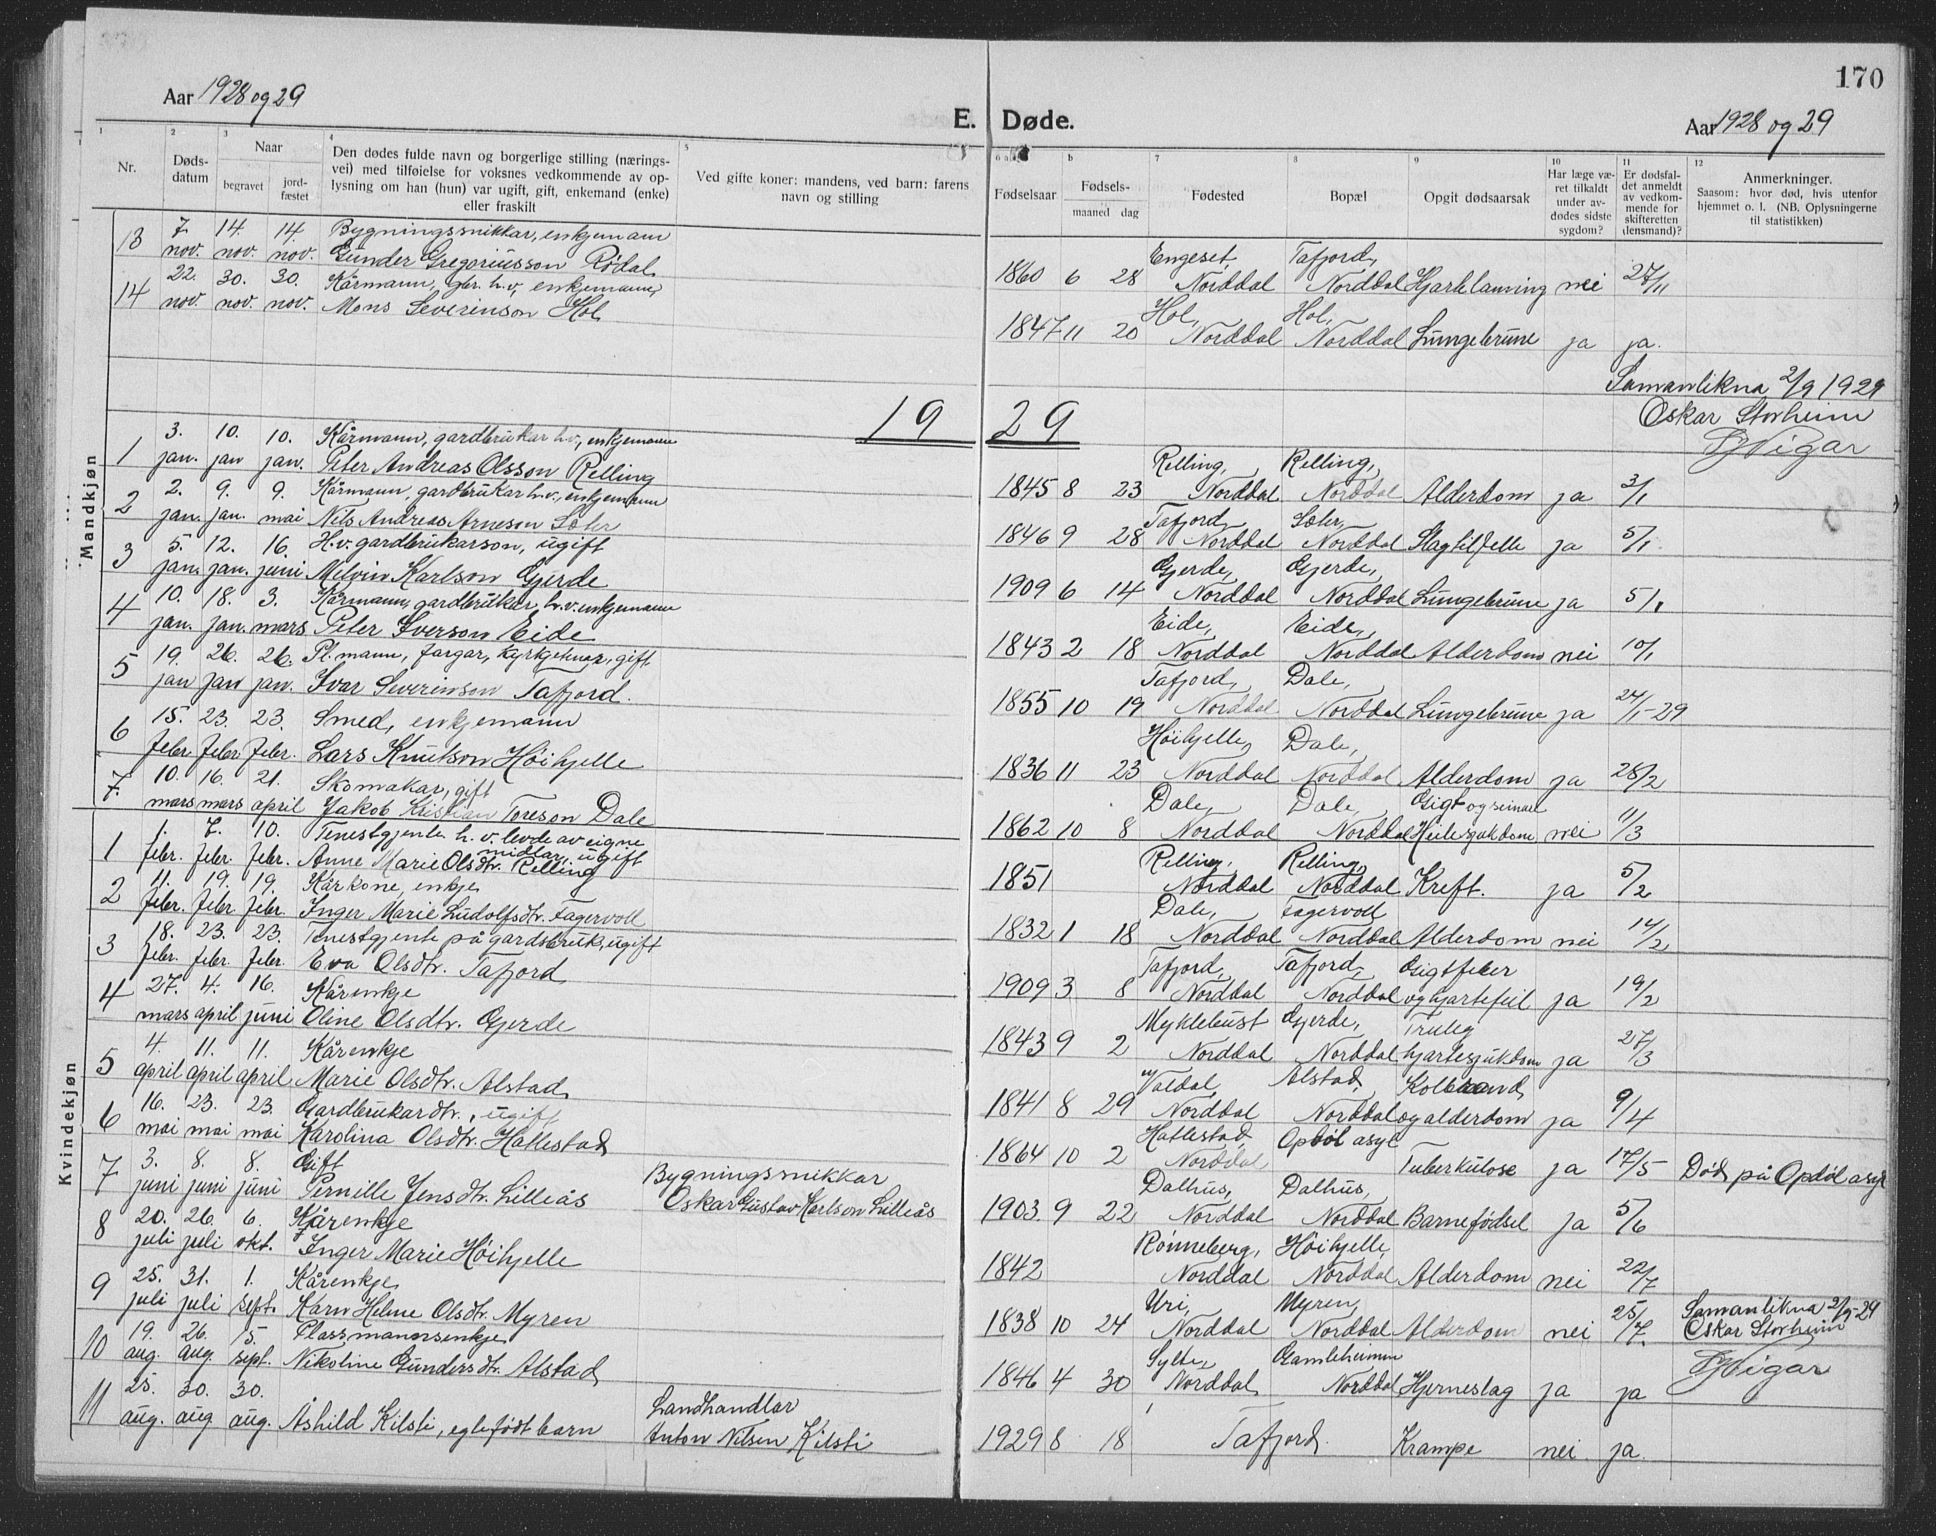 170
Aar 1928 og 29
E. Døde.
Aar 1928 og 29
1 2 3 4 5 6 a b 7 8 9 10 11 12
Nr.
Døds-
datum
Naar
begravet
jord-
fæstet
Den dødes fulde navn og borgerlige stilling (nærings-
vei) med tilføielse for voksnes vedkommende av op-
lysning om han (hun) var ugift, gift, enkemand (enke)
eller fraskilt
Ved gifte koner: mandens, ved barn: farens
navn og stilling
Fødselsaar
Fødsels-
maaned dag
Fødested
Bopæl
Opgit dødsaarsak
Har læge væ-
ret tilkaldt
under av-
dødes sidste
sygdom?
Er dødsfal-
det anmeldt
av vedkom-
mende for
skifteretten
(lensmand)?
Anmerkninger.
Saasom: hvor død, hvis utenfor
hjemmet o. l. (NB. Oplysningerne
til statistikken)
13 7. nov. 14. nov. 14. nov. Bygningssnikkar, enkjemann
Gunder Gregoriusson Rødal
1860 6 28 Engeset, Norddal Tafjord, Norddal Hjartelamning nei 27/11
14 22. nov. 30. nov. 30. nov. Kårmann, gbr. h.v, enkjemann,
Mons Severinson Hol
1847 11 20 Hol, Norddal Hol, Norddal Lungebrune ja ja.
Samanlikna 2/9 1929
Oskar Storheim
Vigar
1929
Mandkjøn
1 3. jan. 10. jan 10. jan. Kårmann, gardbrukar h.v., enkjemann
Peter Andreas Olsson Relling
1845 8 23 Relling, Norddal Relling, Norddal Alderdom ja 3/1
2 2. jan. 9. jan. 9. mai Kårmann, gardbrukar h.v., enkjemann
Nils Andreas Arneson Sæter
1846 9 28 Tafjord, Norddal Sæter, Norddal Slagtilfelle ja 5/1.
3 5. jan. 12. jan. 16. juni H.v. gardbrukarson, ugift
Melvin Karlson Gjerde
1909 6 14 Gjerde, Norddal Gjerde, Norddal Lungebrune ja 5/1
4 10. jan. 18. jan. 3. mars Kårmann, gardbrukar, h.v. enkjemann
Peter Iverson Eide
1843 2 18 Eide, Norddal Eide, Norddal Alderdom nei 10/1
5 19. jan 26. jan 26. jan. Pl.mann, fargar, kyrkjetenar, gift
Ivar Severinson Tafjord.
1855 10 19 Tafjord, Norddal Dale, Norddal Lungebrune ja 24/1-29
6 15. febr. 23. febr. 23. febr. Smed, enkjemann
Lars Knutson Høihjelle
1836 11 23 Høihjelle, Norddal Dale, Norddal Alderdom ja 28/2
7. 10. mars 16. mars 21. april Skomakar, gift
Jakob Kristian Toreson Dale
1862 10 8 Dale, Norddal Dale, Norddal Gigt og seinare Heilesjukdom nei 11/3
Kvindekjøn
1 1. febr. 7. febr. 10. febr. Tenestgjente h.v. levde av eigne
midlar, ugift
Anne Marie Olsdtr. Relling
1851 Relling, Norddal Relling, Norddal Kreft. ja 5/2
2 11. febr. 19. febr. 19. febr. Kårkone, enkje
Inger Marie Ludolfsdtr. Fagervoll
1832 1 18 Dale, Norddal Fagervoll Norddal Alderdom nei 14/2
3 18. febr. 23. febr. 23. febr. Tenestgjente på gardsbruk, ugift
Eva Olsdtr. Tafjord
1909 3 8 Tafjord, Norddal Tafjord, Norddal Gigtfeber og hjartefeil ja 19/2
4 27. mars 4. april 16. juni Kårenkje
Oline Olsdtr. Gjerde
1843 9 2 Myklebust Norddal Gjerde, Norddal Truleg hjartesjukdom ja 27/3
5 4. april 11. april 11. april Kårenkje
Marie Olsdtr. Alstad
1841 8 29 Valdal, Norddal Alstad, Norddal Kolbrand og alderdom ja 9/4
6 16. mai 23. mai 23. mai Gardbrukardtr., ugift
Karolina Olsdtr. Hatlestad
1864 10 2 Hatlestad, Norddal Opdøl asyl Tuberkulose ja 17/5 Død på Opdøl asyl
7 3. juni 8. juni 8. juni Gift
Pernille Jensdtr. Lilleås
Bygningssnikkar
Oskar Gustav Karlson Lilleås
1903. 9 22 Dalhus, Norddal Dalhus, Norddal Barnefødsel ja 5/6
8 20. juli 26. juli 6. okt. Kårenkje
Inger Marie Høihjelle
1842 Rønneberg, Norddal Høihjelle, Norddal Alderdom nei 22/7
9 25. juli 31. juli 1. sept. Kårenkje
Karn Helene Olsdtr. Myren
1838 10 24 Uri, Norddal Myren, Norddal Alderdom nei 25/7. Samanlikna 2/9-29
Oskar Storheim
Vigar
10 19. aug. 26. aug. 15. sept. Plassmannsenkje
Nikoline Gundersdtr. Alstad
1846 4 30 Sylte, Norddal Gamleheimen Norddal Hjerneslag ja ja
11 25. aug. 30. aug 30. aug. Åshild Kilsti, egtefødt barn
Landhandlar
Anton Nilsen Kilsti
1929 8 18 Tafjord. Krampe nei ja.